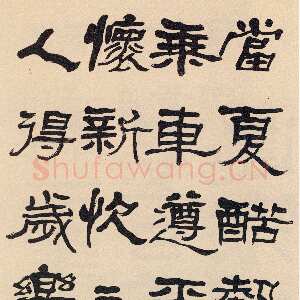 當夏酷
乘車遵平
懷新快
人得歲樂
Shufawang.CN